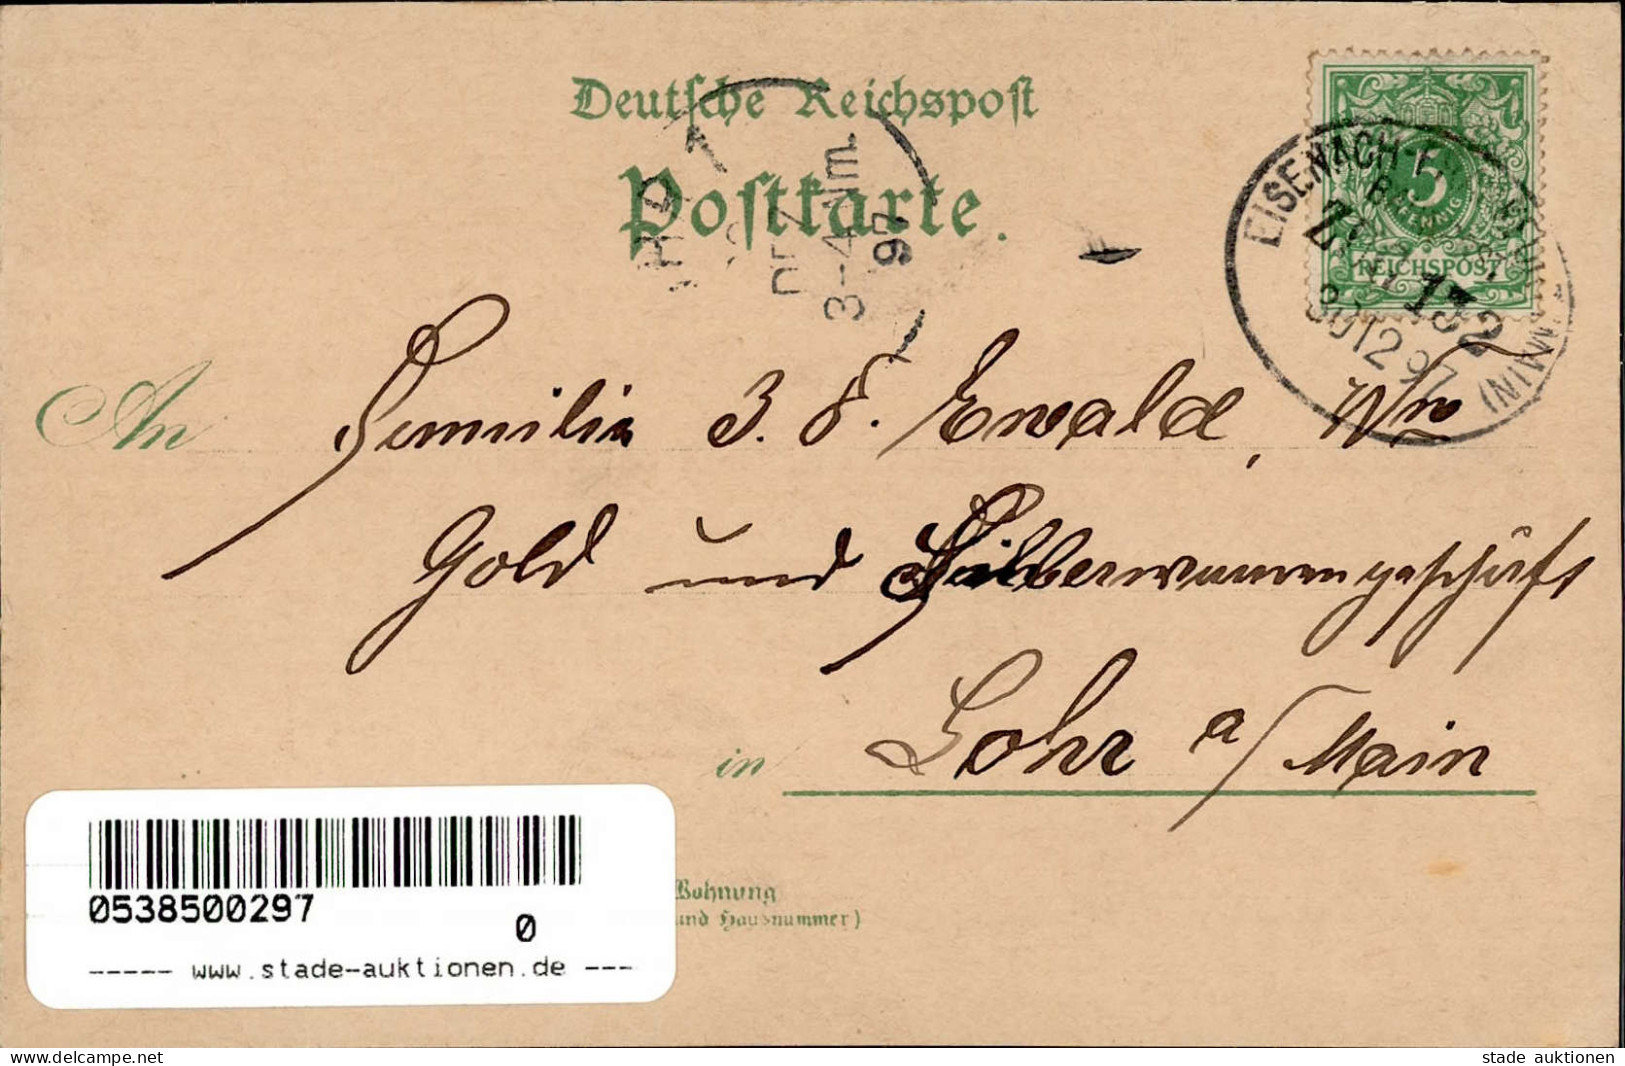 Deutsche Reichspost
Postkarte.
5
PFENNIG
REICHSPOST
EISENACH
MAIN)
132
30 12 97
3-4 Nm.
97
An Familie J. F. Ewald, Ww
Gold und Silberwarengeschäft
in Lohr a/Main
Wohnung
und Hausnummer)
0538500297
0
----- www.stade-auktionen.de ---
delcampe.net
stade auktionen